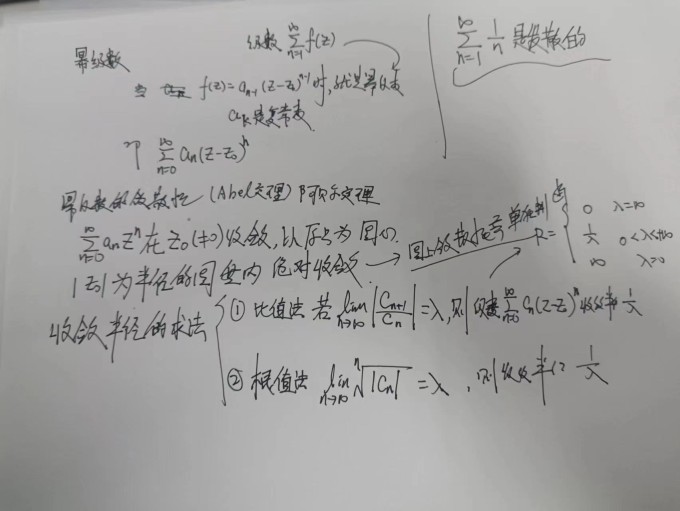 级数 $\sum_{n=1}^{\infty} f(z)$
幂级数
当 f(z)=a_{n-1}(z-z_0)^{n-1} 时,就是幂级数
a_n是复常数
即 $\sum_{n=0}^{\infty} a_n(z-z_0)^n$
$\sum_{n=1}^{\infty} \frac{1}{n}$ 是发散的
幂级数的敛散性 (Abel定理) 阿贝尔定理
$\sum_{n=0}^{\infty} a_n z^n$ 在 z_0(≠0)收敛,以原点为圆心
|z_0|为半径的圆盘内 绝对收敛 → 圆上敛散 单独判
R= { 0 λ=∞
$\frac{1}{λ}$ 0<λ<+∞
∞ λ=0
收敛半径的求法
① 比值法 若 $\lim_{n→∞} |\frac{C_{n+1}}{C_n}|$ =λ,则 $\sum_{n=0}^{\infty} C_n(z-z_0)^n$ 收敛半 $\frac{1}{λ}$
② 根值法 $\lim_{n→∞} \sqrt[n]{|C_n|}$ =λ,则收敛半径 $\frac{1}{λ}$